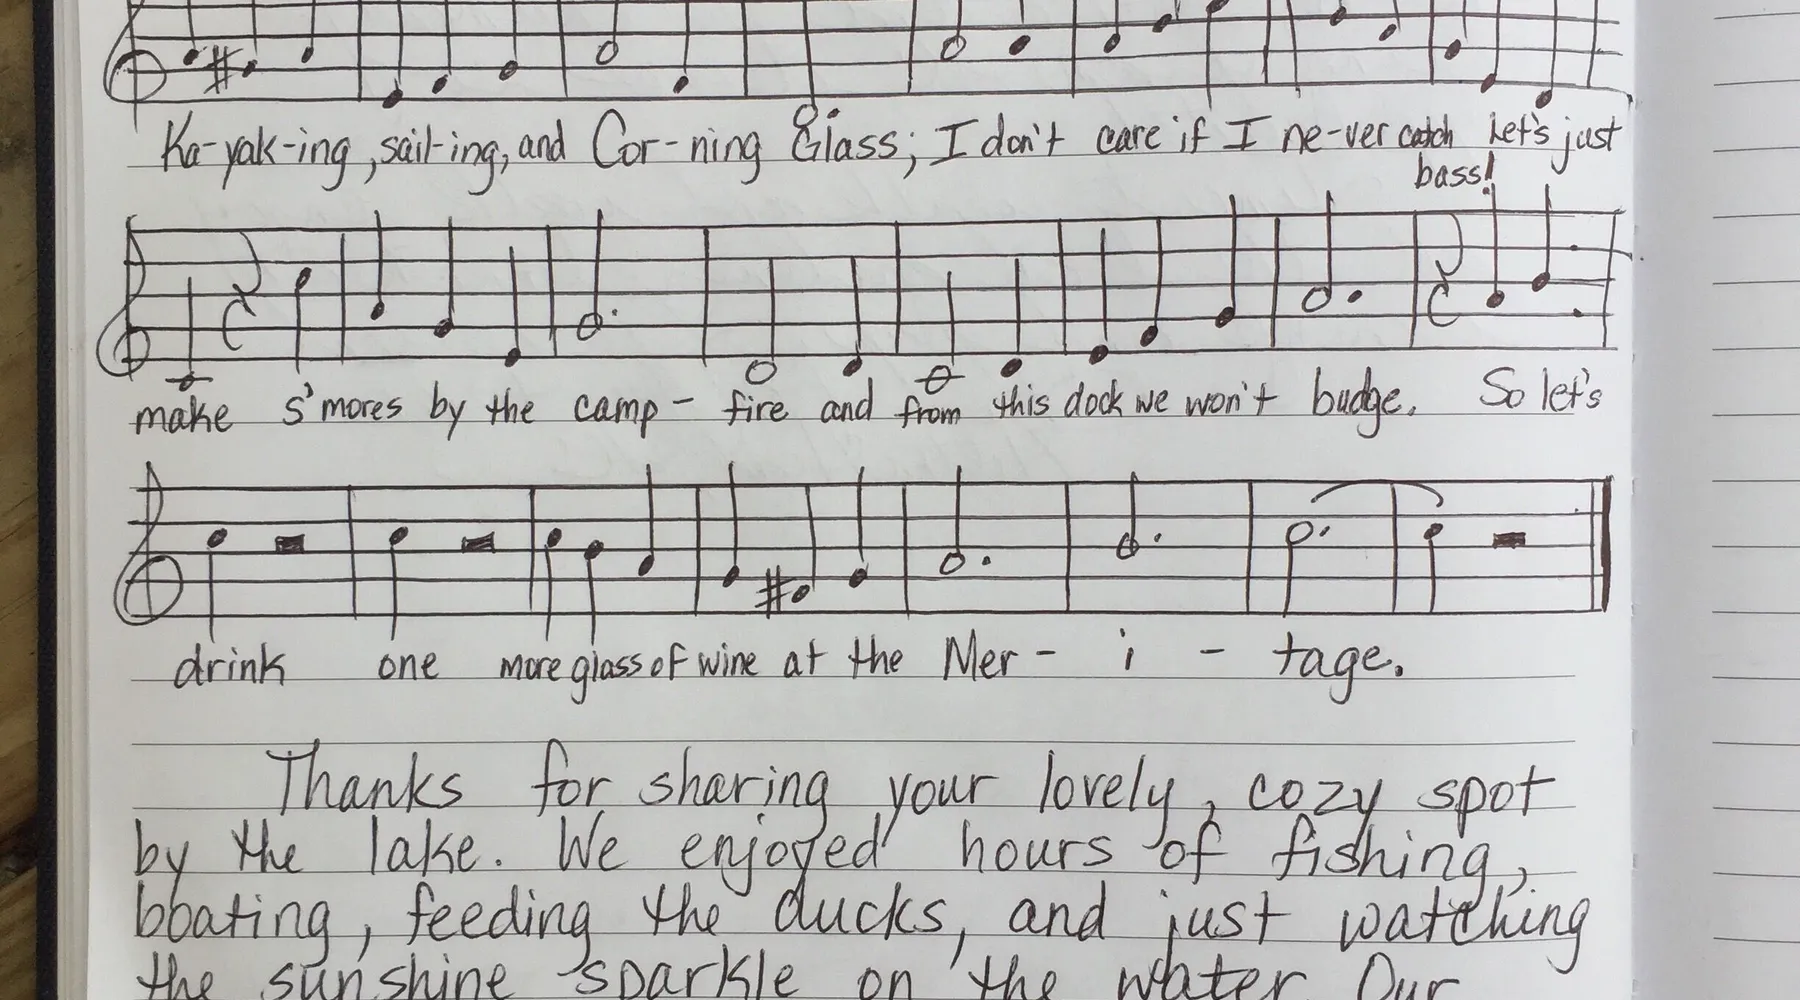 Ka-yak-ing, sail-ing, and Cor-ning Glass; I don't care if I ne-ver catch Let's just
bass!
make s'mores by the camp- fire and from this dock we won't budge. So let's
drink one more glass of wine at the Mer - i - tage.
Thanks for sharing your lovely, cozy spot
by the lake. We enjoyed hours of fishing,
boating, feeding the ducks, and just watching
the sunshine sparkle on the water. Our